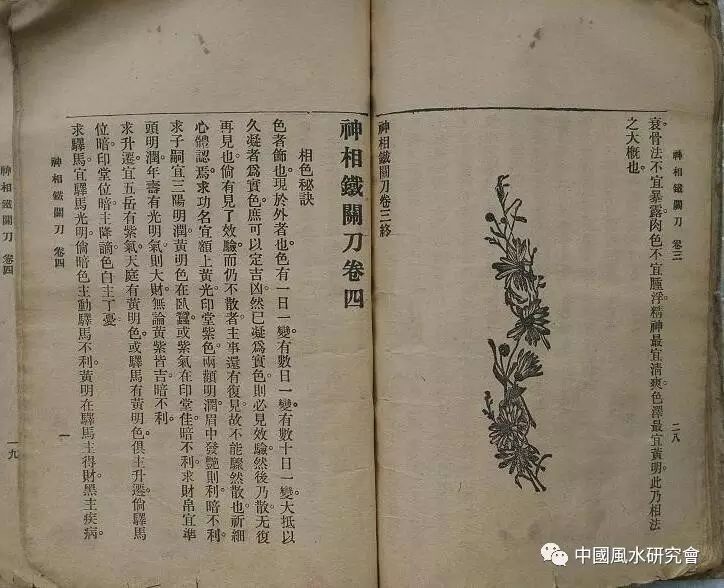 神相鐵關刀　卷三
二八
衰骨法不宜暴露。肉色不宜腫浮。精神最宜清爽。色澤最宜黃明。此乃相法
之大概也。
神相鐵關刀卷三終
神相鐵關刀卷四
相色秘訣
色者飾也。現於外者也。色有一日一變。有數日一變。有數十日一變。大抵以
久凝者爲實色。庶可以定吉凶。然已凝爲實色。則必見效驗。然後乃散。無復
再見也。倘有見了效驗。而仍不散者。主事還有復見。故不能驟然散也。祈細
心體認焉。求功名。宜額上黃光。印堂紫色。兩顴明潤。眉中發艷則利。暗不利。
求子嗣。宜三陽明潤。黃明色在臥蠶。或紫氣在印堂佳。暗不利。求財帛。宜準
頭明潤。年壽有光明氣。則大財。無論黃紫皆吉。暗不利。
求升遷。宜五岳有紫氣。天庭有黃明色。或驛馬有黃明色。俱主升遷。倘驛馬
位暗。印堂位暗。主降謫。色白主丁憂。
求驛馬。宜驛馬光明。倘暗色主動驛馬不利。黃明在驛馬主得財。黑主疾病。
神相鐵關刀　卷四
一
神相鐵關刀　卷四
一九
中國風水研究會